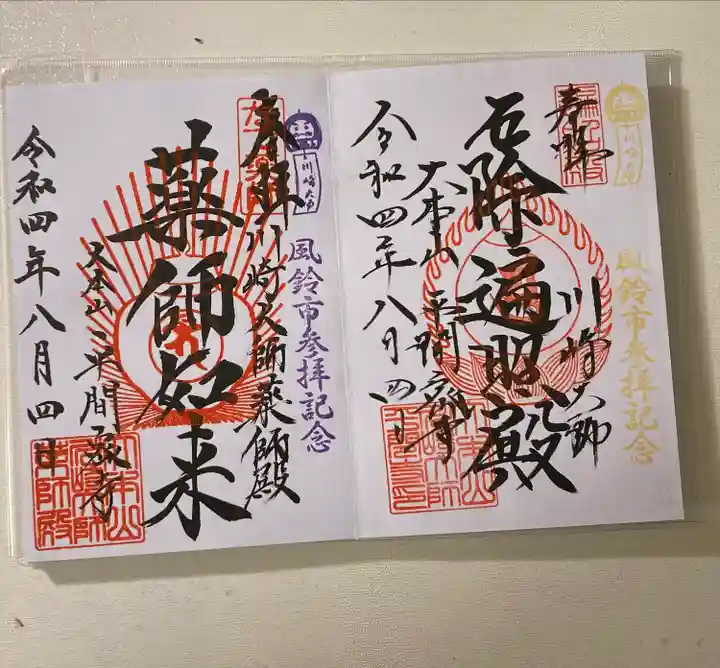 奉拝
川崎大師
厄除遍照殿
大本山 平間寺
令和四年八月四日
川崎大師
風鈴市参拝記念
奉拝
川崎大師薬師殿
薬師如来
大本山 平間寺
令和四年八月四日
川崎大師
風鈴市参拝記念